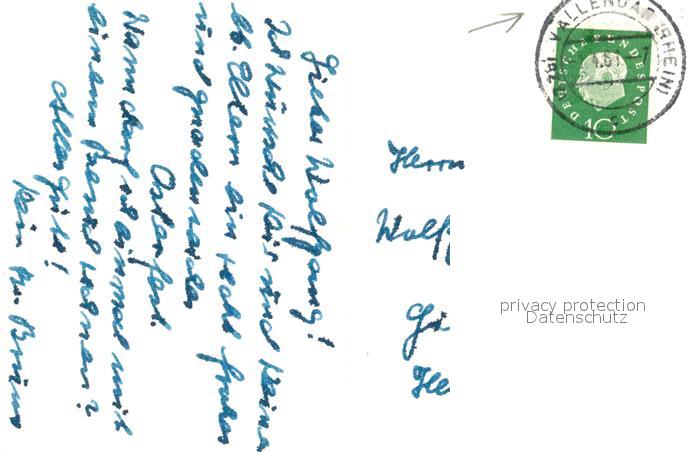 Lieber Wolfgang!
Ich wünsche Dir und Deinen
lb. Eltern ein recht frohes
und gnadenreiches
Osterfest.
Wann darf ich einmal mit
einem Brief rechnen?
Alles Gute!
Dein Br. Bruno
Herrn
Wolf
Gi
He
VALLENDAR (RHEIN)
DEUTSCHE BUNDESPOST
10
privacy protection
Datenschutz